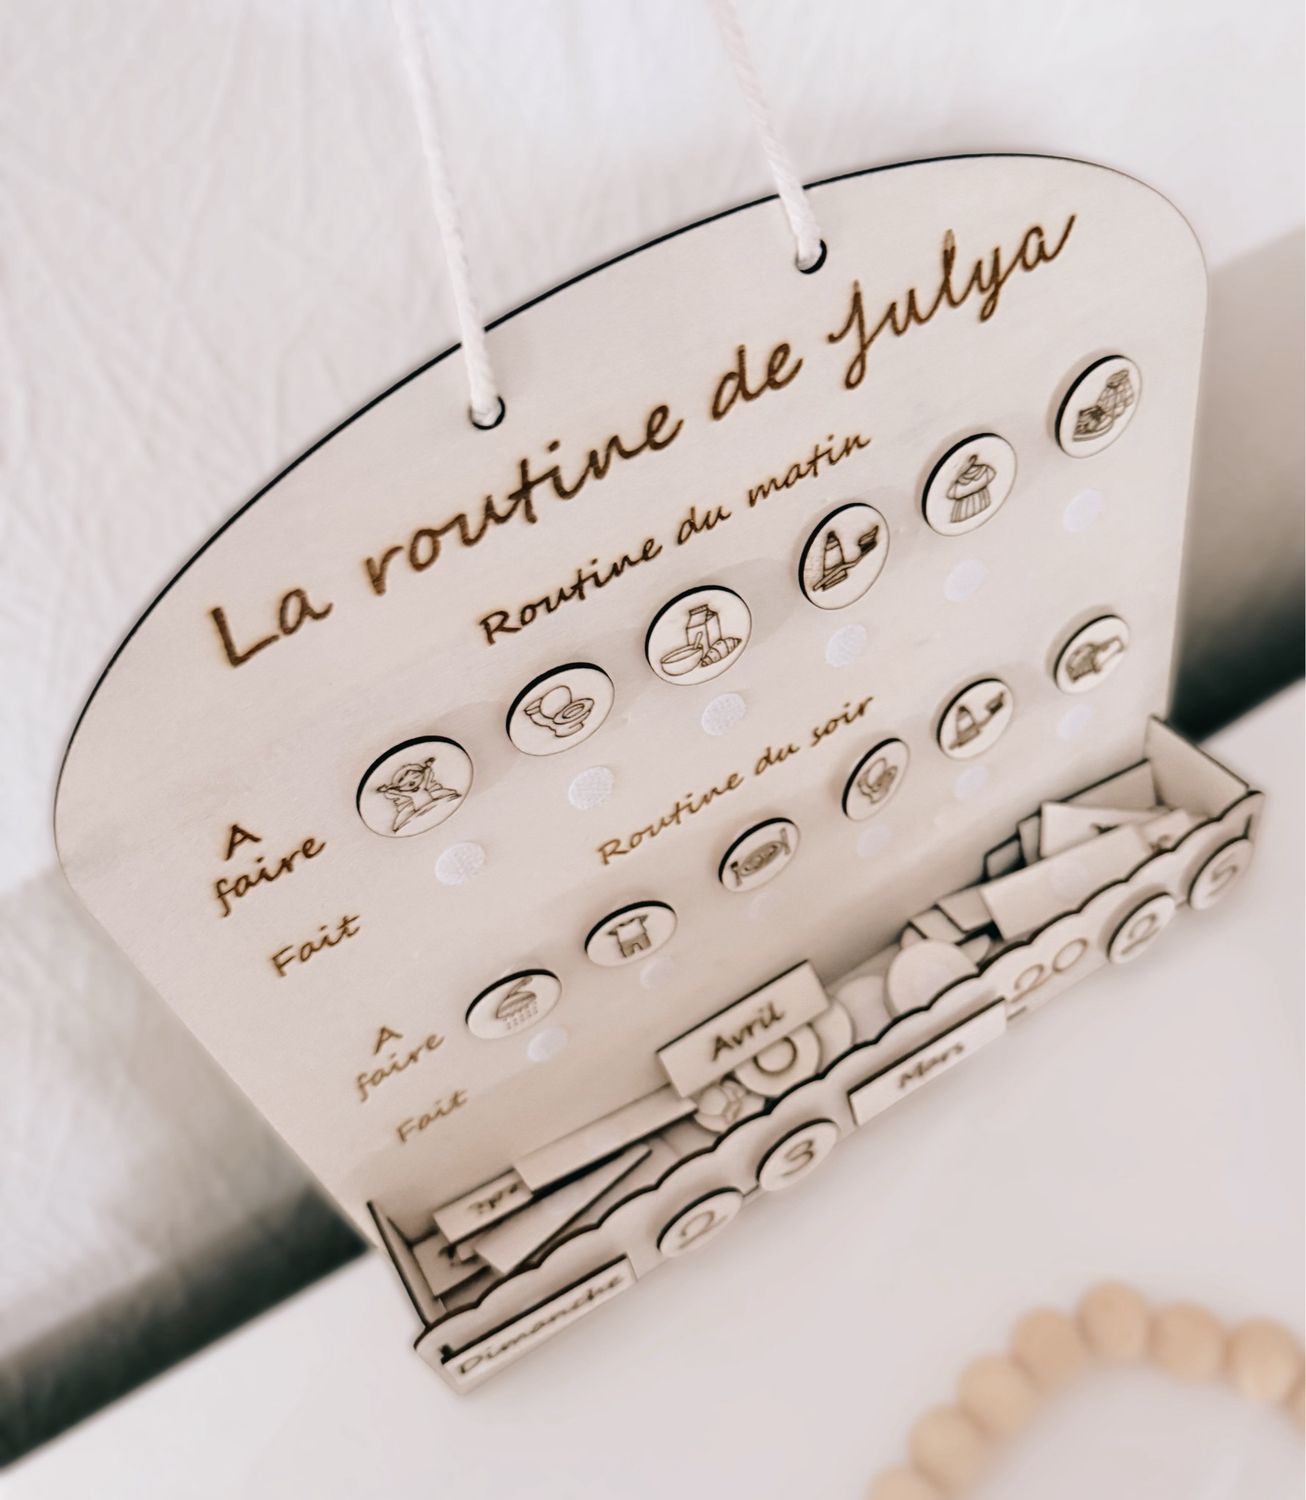 La routine de Julya
Routine du matin
A
faire
Fait
Routine du soir
A
faire
Fait
Avril
Dimanche 2 3 Mars 20 2 5